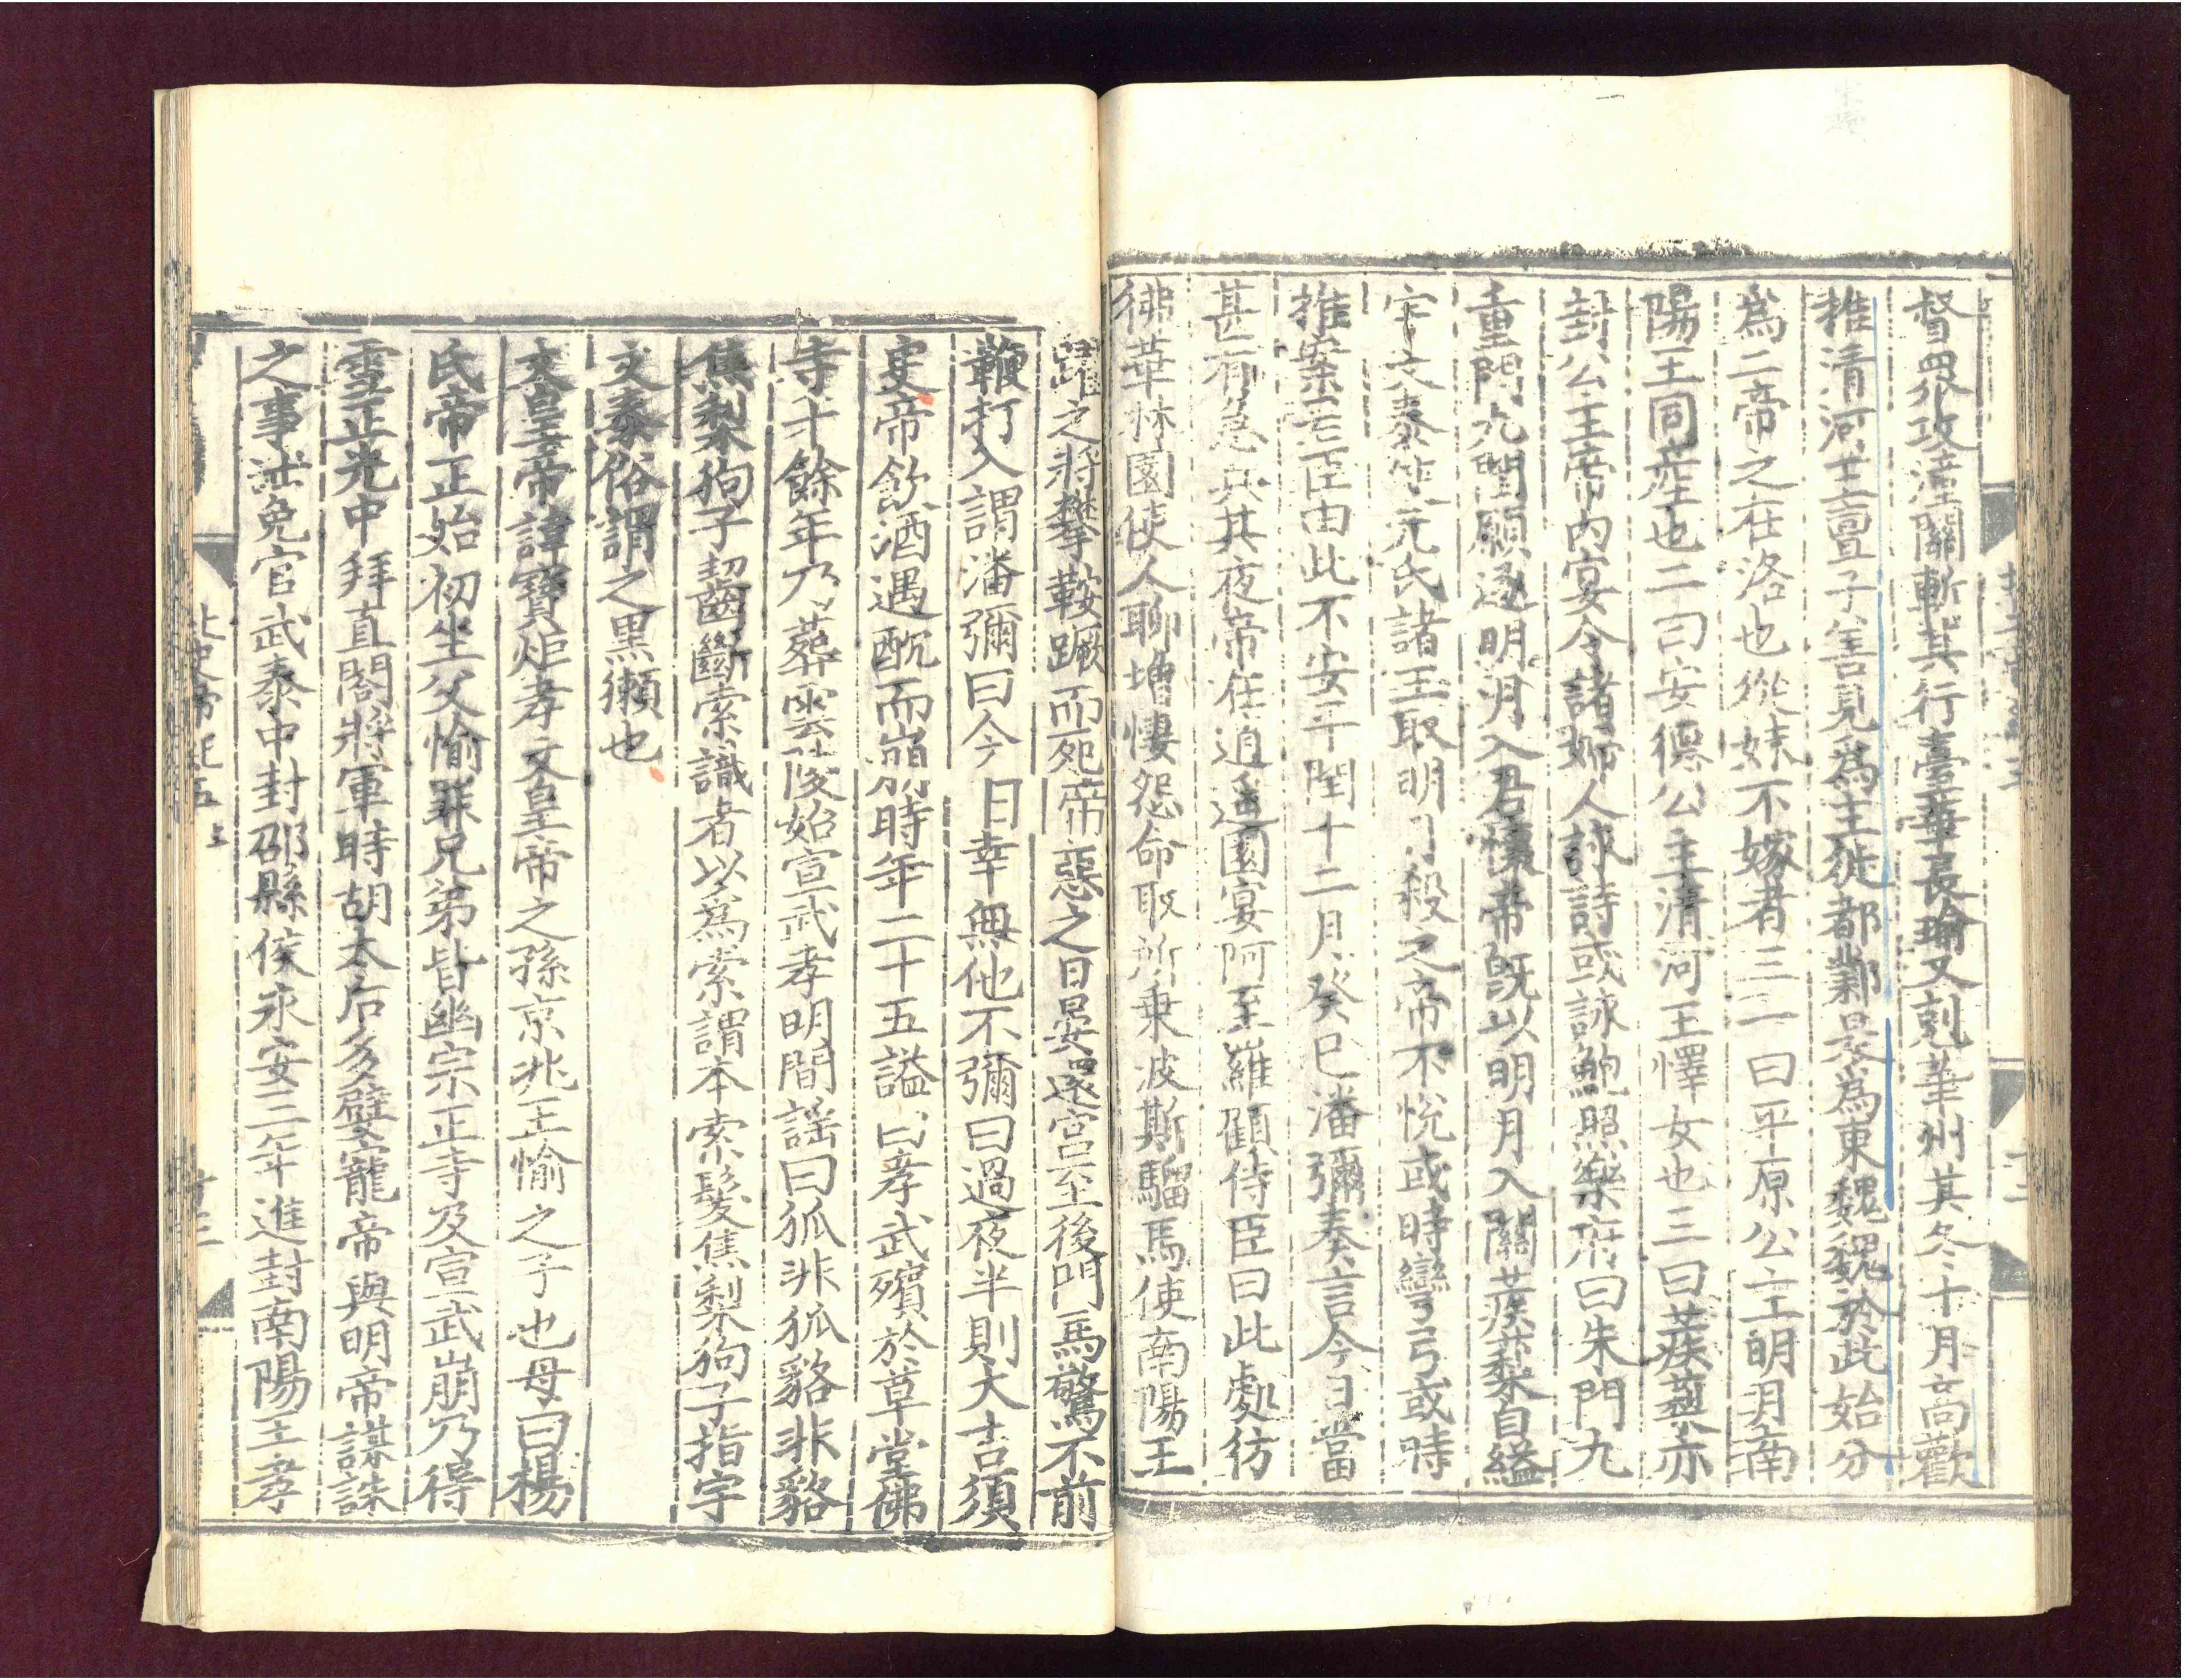 督衆攻潼關斬其行臺華長瑜又剋華州其冬十月高歡
推清河王亶子善見爲主徙都鄴是爲東魏魏於此始分
爲二帝之在洛也從妹不嫁者三一曰平原公主明月南
陽王同産也二曰安德公主清河王懌女也三曰蒺䔧亦
封公主帝内宴令諸婦人詠詩或詠鮑照樂府曰朱門九
重門九閨願逐明月入君懷帝既以明月入關蒺䔧自縊
宇文泰使元氏諸王取明月殺之帝不悅或時彎弓或時
推案君臣由此不安平閏十二月癸巳潘彌奏言今日當
甚有急兵其夜帝在逍遥園宴阿至羅顧侍臣曰此處彷
彿華林園使人聊增悽怨命取所乗波斯騮馬使南陽王
躍之將攀鞍蹶而死帝惡之日晏還宮至後門馬驚不前
鞭打入謂潘彌曰今日幸無他不彌曰過夜半則大吉須
㝛帝飲酒遇酖而崩時年二十五謚曰孝武殯於草堂佛
寺十餘年乃葬雲陵始宣武孝明間謡曰狐非狐貉非貉
焦梨狗子齧斷索識者以爲索謂本索髮焦梨狗子指宇
文泰俗謂之黑獺也
文皇帝諱寶炬孝文皇帝之孫京兆王愉之子也母曰楊
氏帝正始初坐父愉罪兄弟皆幽宗正寺及宣武崩乃得
雪正光中拜直閤將軍時胡太后多嬖寵帝與明帝謀誅
之事泄免官武泰中封邵縣侯永安三年進封南陽王孝
北史帝紀五